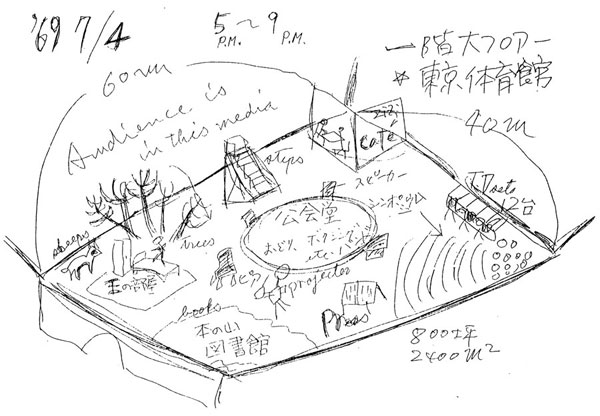 '69 7/4
5〜9
P.M. P.M.
一階大フロアー
*東京体育館
60m
40m
Audience is
in this media
Café
steps
スピーカー
シンポジウム
T.V sets
12台
公会堂
おどり、ボクシング
etc.
sheeps
trees
本の部屋
projector
Press
books
本の山
図書館
800坪
2400m²